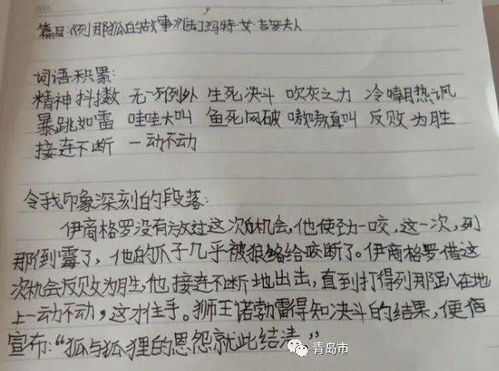 篇目:《列那狐的故事》[法]玛特·艾·吉罗夫人
词语积累:
精神抖擞 无一列外 生死决斗 吹灰之力 冷嘲热讽
暴跳如雷 哇哇大叫 鱼死网破 嗷嗷直叫 反败为胜
接连不断 一动不动
令我印象深刻的段落:
伊商格罗没有放过这次的机会,他使劲一咬,这一次,列
那倒霉了,他的爪子几乎被狼给咬断了。伊商格罗借这
次机会反败为胜,他接连不断地出击,直到打得列那趴在地
上一动不动,这才住手。狮王诺勃雷得知决斗的结果,便
宣布:“狐与狐狸的恩怨就此结清。”
青岛市